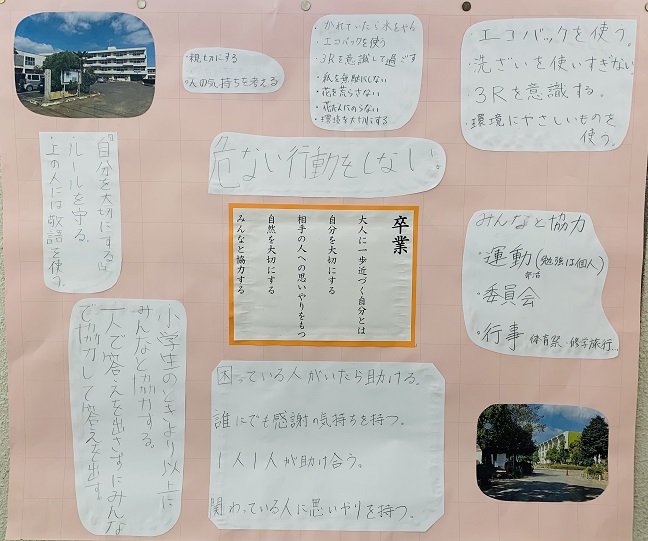 ・親切にする
・人の気持ちを考える
・かれていたら水をやる
・エコバックを使う
・3Rを意識して過ごす
・紙を無駄にしない
・花を荒らさない
・花だんにのらない
・環境を大切にする
・エコバックを使う。
・洗ざいを使いすぎない
・3Rを意識する。
・環境にやさしいものを
使う。
『自分を大切にする』
・ルールを守る.
・上の人には敬語を使う
危ない行動をしない。
卒業
大人に一歩近づく自分とは
自分を大切にする
相手の人への思いやりをもつ
自然を大切にする
みんなと協力する
みんなと協力
・運動(勉強は個人)
部活
・委員会
・行事 体育祭・修学旅行...
小学生のときより以上に
みんなと協力する。
一人で答えを出さずにみんな
で協力して答えを出す。
困っている人がいたら助ける。
誰にでも感謝の気持ちを持つ。
1人1人が助け合う。
関わっている人に思いやりを持つ。